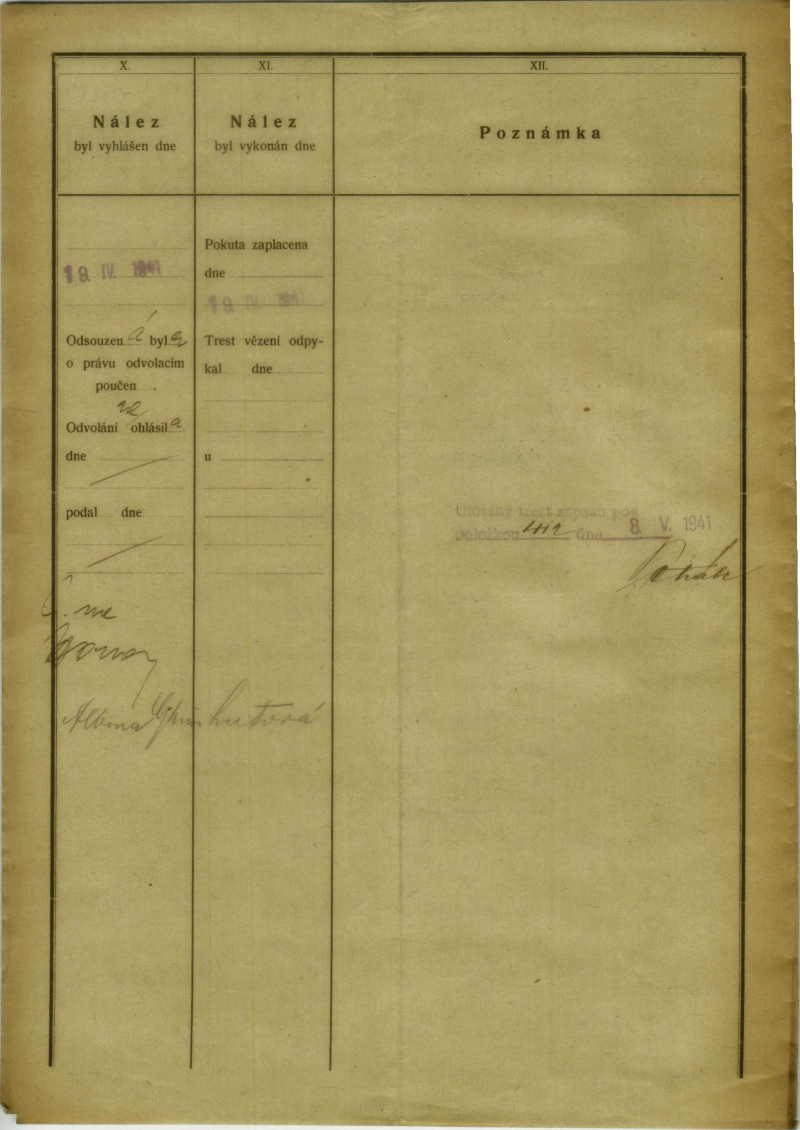 X.
Nález
byl vyhlášen dne
19. IV. 1941
Odsouzen á byl a
o právu odvolacím
poučen .
Odvolání ne ohlásil a
dne
podal dne
Albína
XI.
Nález
byl vykonán dne
Pokuta zaplacena
dne
19. IV. 1941
Trest vězení odpy-
kal dne
u
XII.
Poznámka
Uložený trest zapsán pod
položkou 412 dne 8. V. 1941